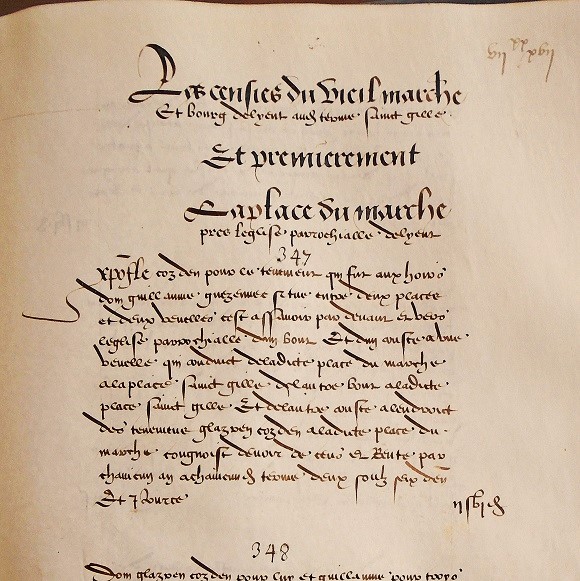 vii xx xvii
Les censies du vieil marche
Et bourg delyent aud terme sainct gille
Et premierement
La place du marche
pres leglise parrochialle delyent
347
xpofle cozden pour le tenement qui fut aux hoirs
dom guillaume guezennec situe entre deux places
et deux venelles cest assavoir par devant et vers
leglise parrochialle dun bout Et dun couste a une
venelle qui conduit de ladicte place du marche
a la place sainct gille delautre bout a ladicte
place sainct gille Et delautre couste a lendroict
des tenemens glazren cozden a ladicte place du
marche congnoist devoir de cens et Rente par
chaincun an a chaincun d terme deux soulz seix den
Et
ii s vi d
348
Dom glazren cozden pour luy et guillaume pour troys